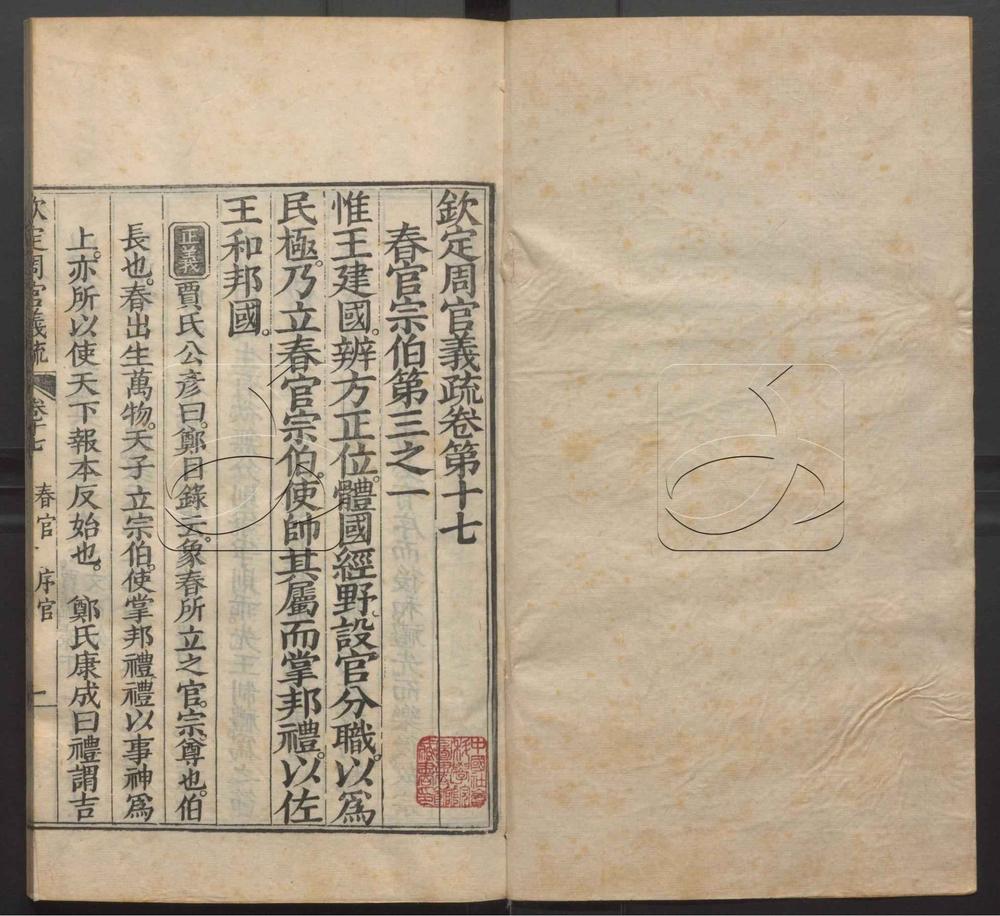 欽定周官義疏卷第十七
春官宗伯第三之一
惟王建國。辨方正位。體國經野。設官分職。以爲
民極。乃立春官宗伯。使帥其屬而掌邦禮。以佐
王和邦國。
正義 賈氏公彥曰。鄭目錄云。象春所立之官。宗尊也。伯
長也。春出生萬物。天子立宗伯。使掌邦禮禮以事神爲
上。亦所以使天下報本反始也。 鄭氏康成曰禮謂吉
欽定周官義疏 卷十七 春官 序官 一